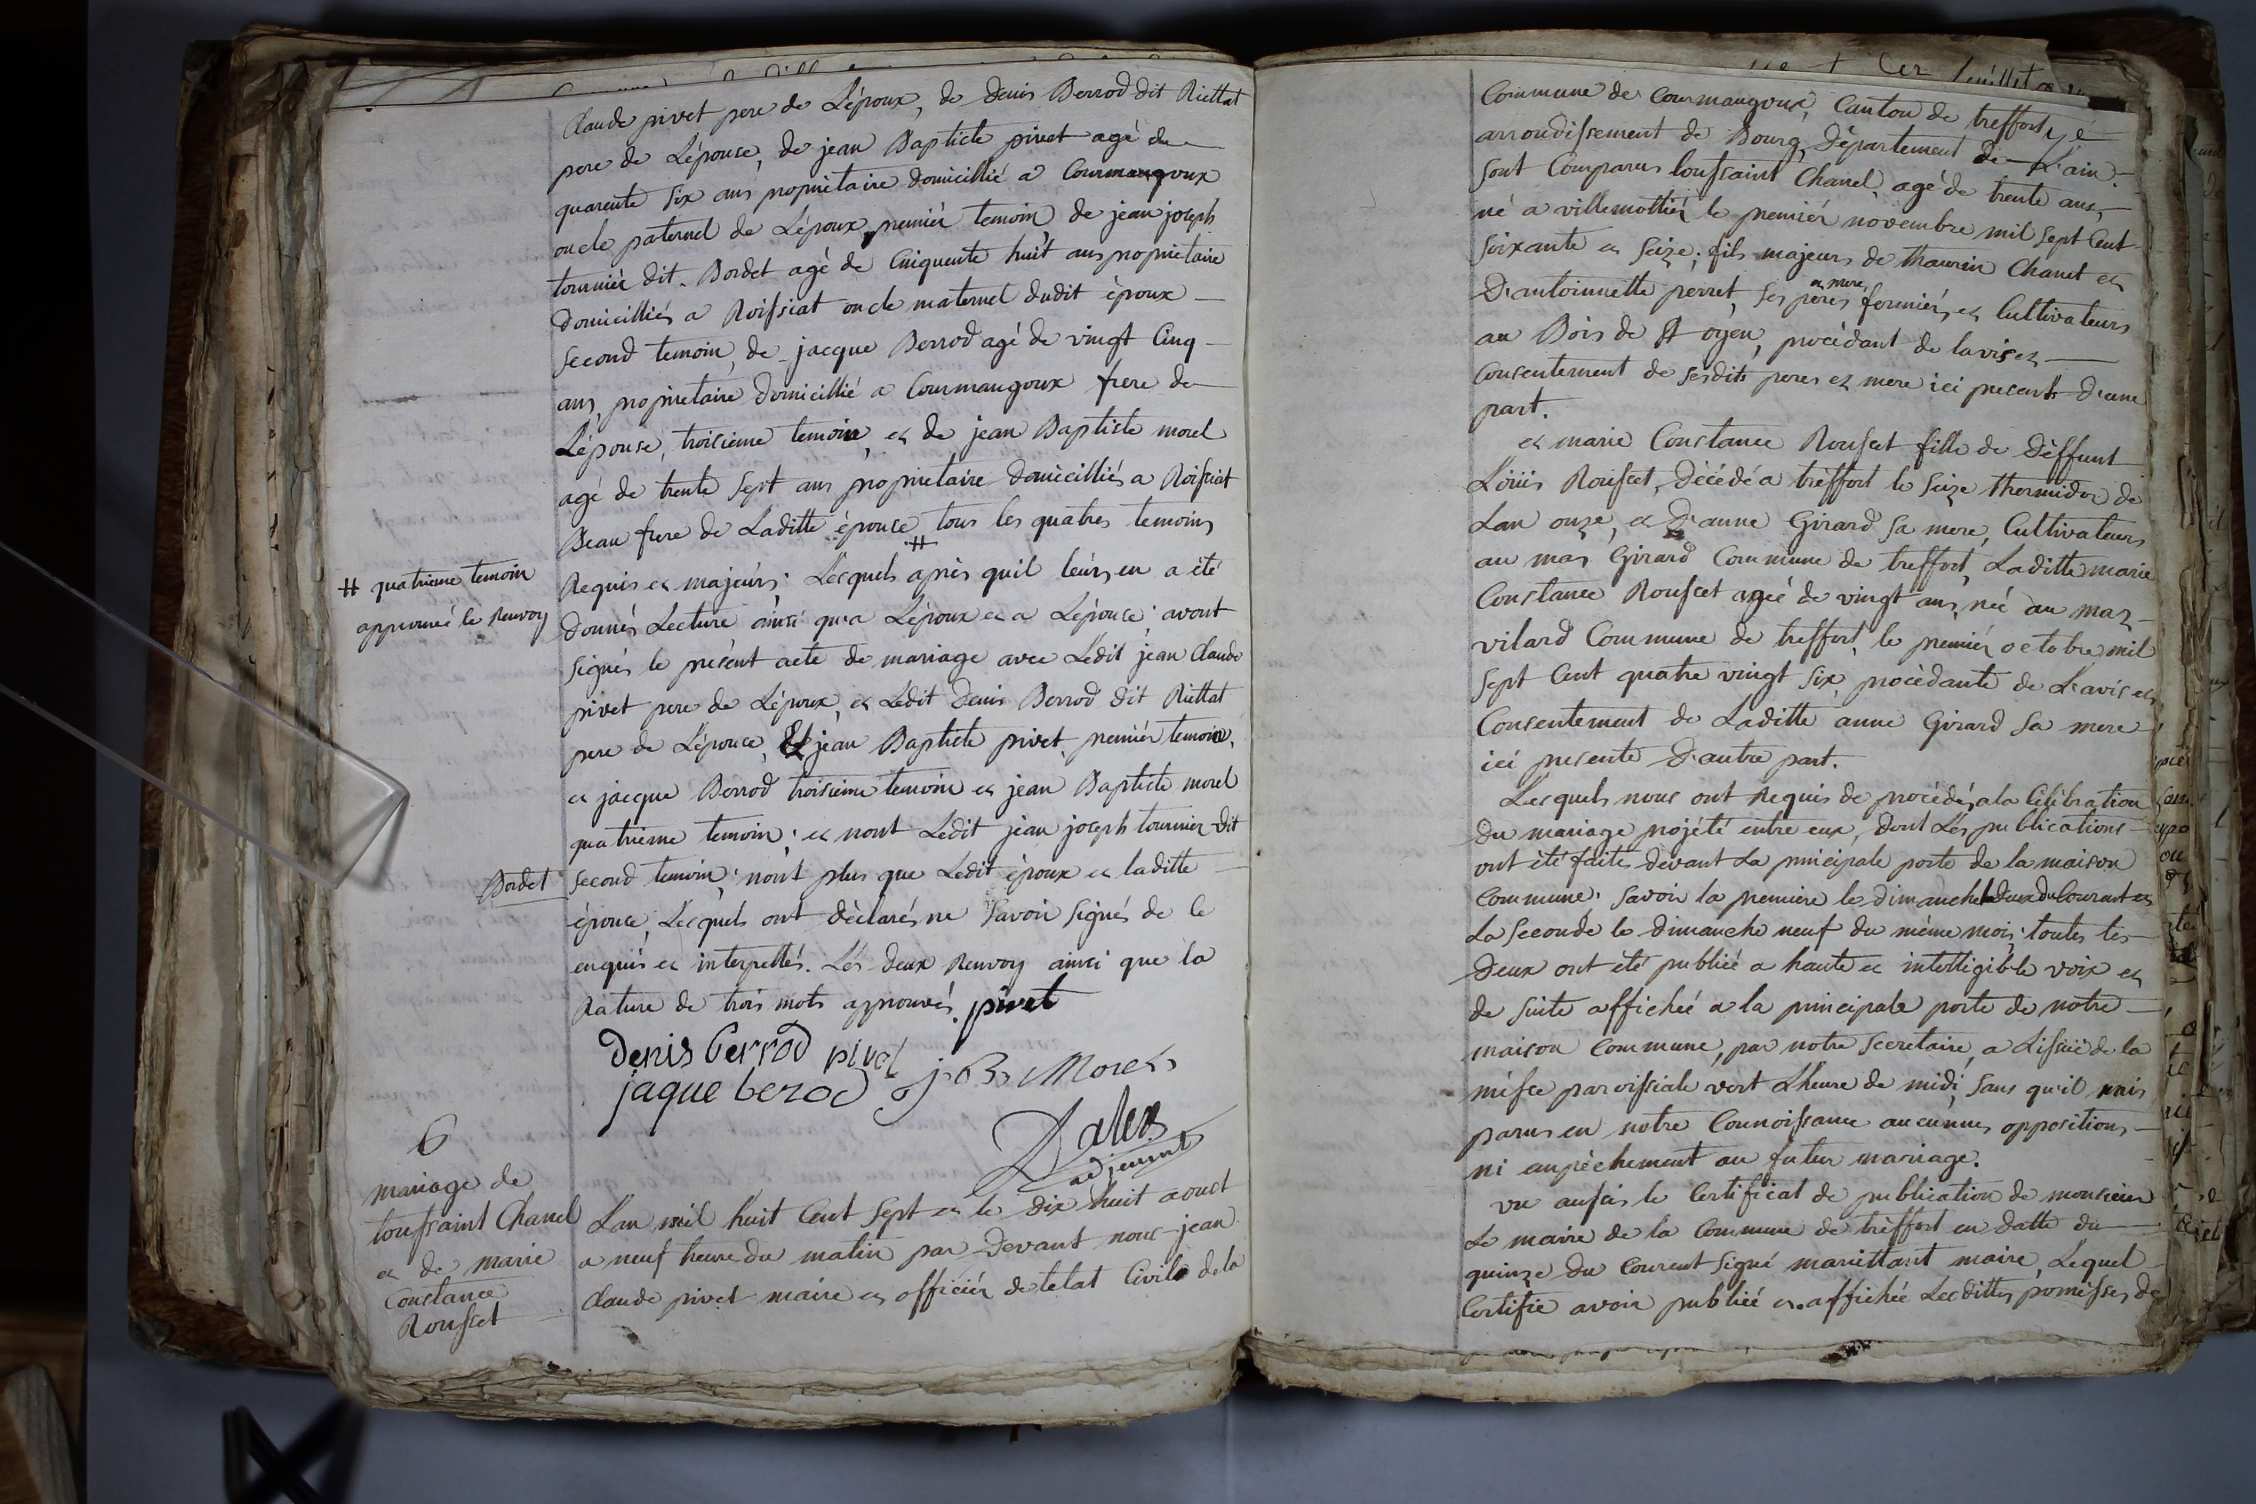 Claude pivet pere de Lépoux, de denis Berrod dit Riettat
pere de Lépouse, de jean Baptiste pivet agé de
quarente six ans propriétaire domicillié a Courmangoux
oncle paternel de Lépoux, premiér temoin, de jean joseph
tourniér dit Bordet agé de Cinquente huit ans propriétaire
domicilliés a Roissiat oncle maternel dudit époux
second temoin, de jacque Berrod agé de vingt Cinq
ans, propriétaire domicillié a Courmangoux frere de
Lépouse, troisieme temoin, et de jean Baptiste morel
agé de trente sept ans propriétaire domicilliés a Roissiat
Beau frere de Laditte épouse # tous les quatres temoins
# quatrieme temoin
approuvé le Renvoy
Requis et majeurs; Lesquels après quil leurs en a été
donnés Lecture ainsi qu'a Lépoux et a Lépouse; avont
signés le présent acte de mariage avec Ledit jean Claude
pivet pere de Lépoux, et Ledit Denis Berrod dit Riettat
pere de Lépouse, Et jean Baptiste pivet premiér temoin,
et jacque Berrod troisieme temoin et jean Baptiste morel
quatrieme temoin; et nont Ledit jean joseph tournier dit
Bordet
second temoin; nont plus que Ledit époux et laditte
épouse, Lesquels ont dèclarés ne savoir signés de ce
enquis et interpellés. Lés deux Renvoy ainsi que la
Rature de trois mots approuvés. pivet
denis berrod pivet
jaque berod j B Morel
adjoint
6
mariage de
toussaint Chanel
et de marie
Constance
Rousset
Lan mil huit Cent sept et le dix huit aoust
a neuf heure du matin par Devant nous jean
Claude pivet maire et officiér de letat Civile de la
Commune de Courmangoux, Canton de treffort,
arrondissement de Bourg, Département de L'ain.
sont Comparus toussaint Chanel, agé de trente ans,
né a villemottiér le premiér novembre mil sept Cent
soixante et seize; fils majeurs de thaurin Chanel et
D'antoinnette perret, ses peres et mere fermiérs et Cultivateurs
au Bois de St oyen, procédant de lavis et
Consentement de sesdits peres et mere ici present D'une
part.
et marie Constance Rousset fille de dèffunt
Löüis Rousset, Dècédé a trèffort le seize thermidor de
Lan onze, et D'anne Girard sa mere, Cultivateurs
au mas Girard Commune de treffort, Laditte marie
Constance Rousset agée de vingt ans, née au mas
vilard Commune de treffort, le premiér octobre mil
sept Cent quatre vingt six, procèdante de L'avis et
Consentement de Laditte anne Girard sa mere
ici presente D'autre part.
Lesquels nous ont Requis de procédér a la Célébration
du mariage projété entre eux, dont Lés publications
ont été faites devant La principale porte de la maison
Commune; savoir la premiere le dimanche deux du Courant et
La seconde le dimanche neuf du même mois; toutes les
Deux ont été publiée a haute et intelligible voix et
de suite affichée a la principale porte de notre
maison Commune, par notre secretaire, a Lissüe de la
mésse paroissiale vert Lheure de midi, sans qu'il nais
parus en notre Connoissance aucunnes oppositions
ni enpèchement au futur mariage.
vu aussis le Certificat de publication de monsieur
Le maire de la Commune de trèffort en datte du
quinze du Courent signé mariettant maire, Lequel
Certifie avoir publiée et affichée Lesdittes promésses de